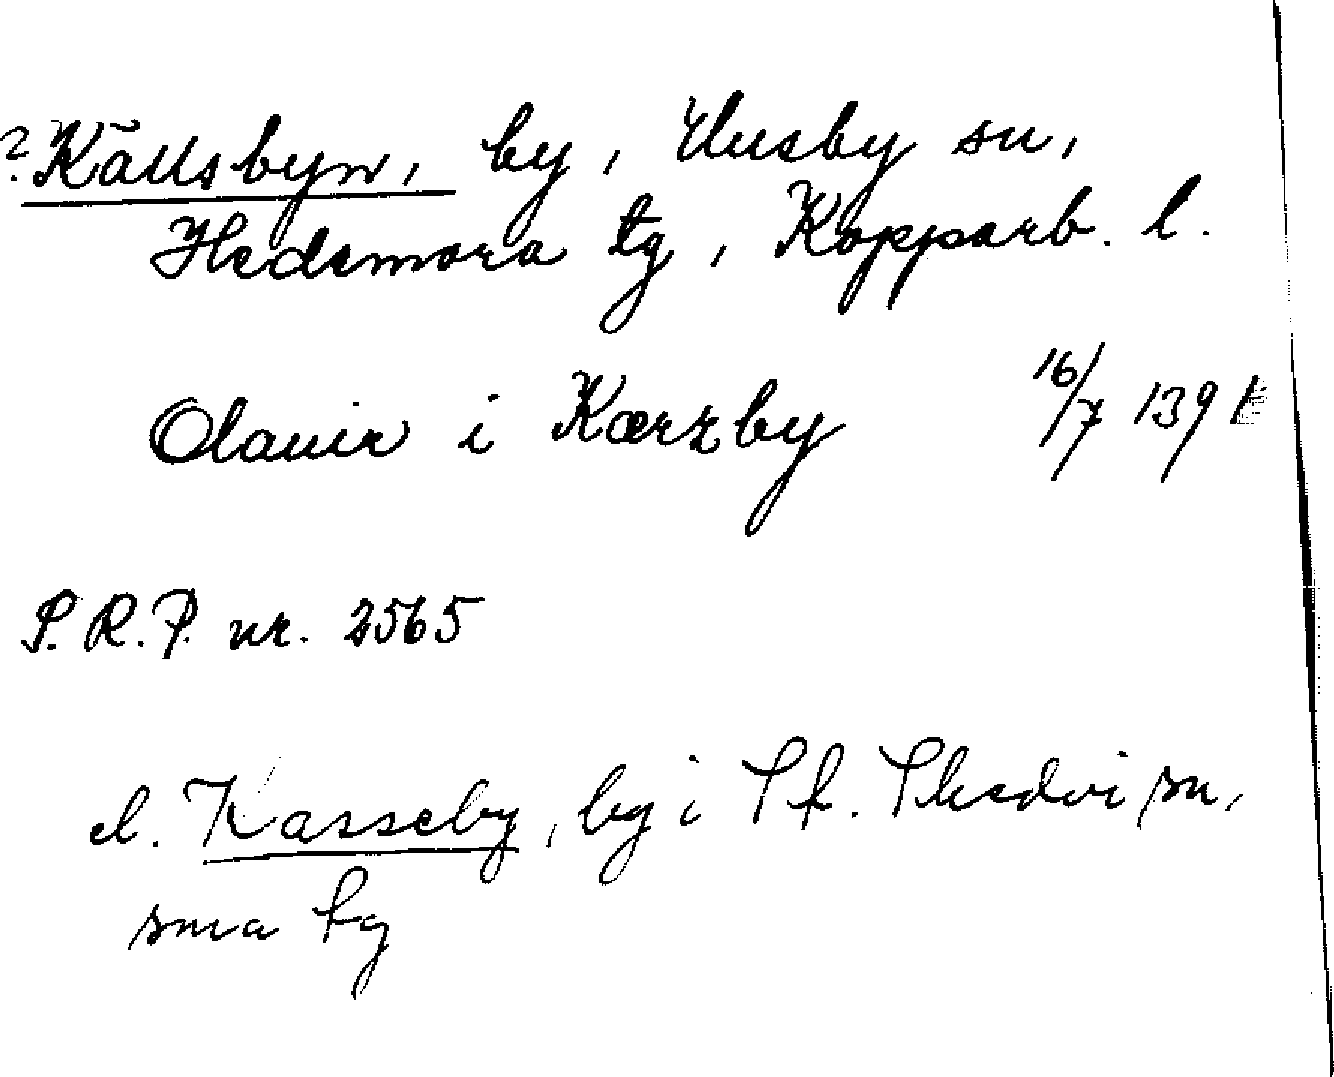 ? Källsbyn, by, Husby sn,
Hedemora tg, Kopparb. l.
Olauir i Kærzby 16/7 139
S. R. P. nr. 2565
el. Kasseby, by i St. Skedvi sn,
sma tg